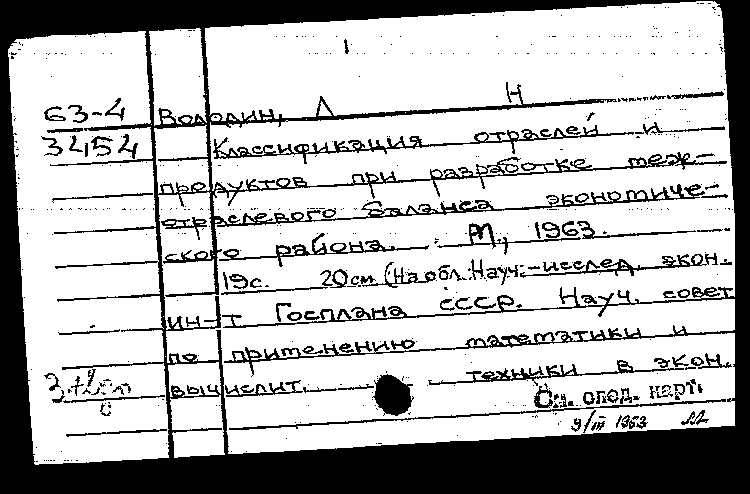 63-4 Володин, Л Н
3454 Классификация отраслей и
продуктов при разработке меж-
отраслевого баланса экономиче-
ского района. М., 1963.
19с. 20см (На обл. Науч.-исслед. экон.
ин-т Госплана СССР. Науч. совет
по применению математики и
вычислит. техники в экон.
См. след. карт.
9/III 1963